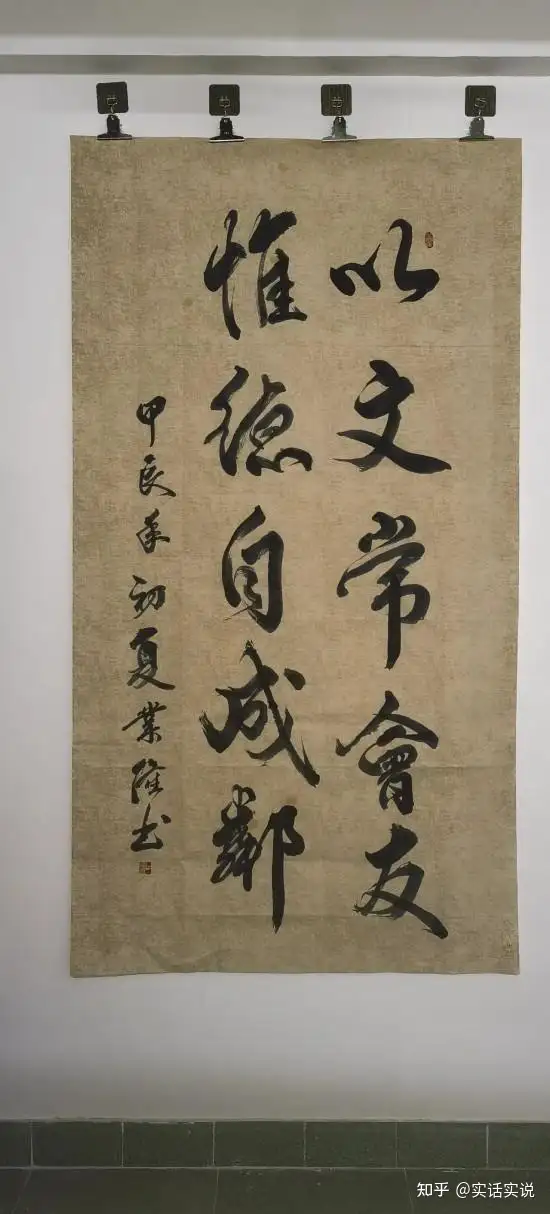 以文常會友
惟德自成鄰
甲辰年初夏業隆书
知乎 @实话实说